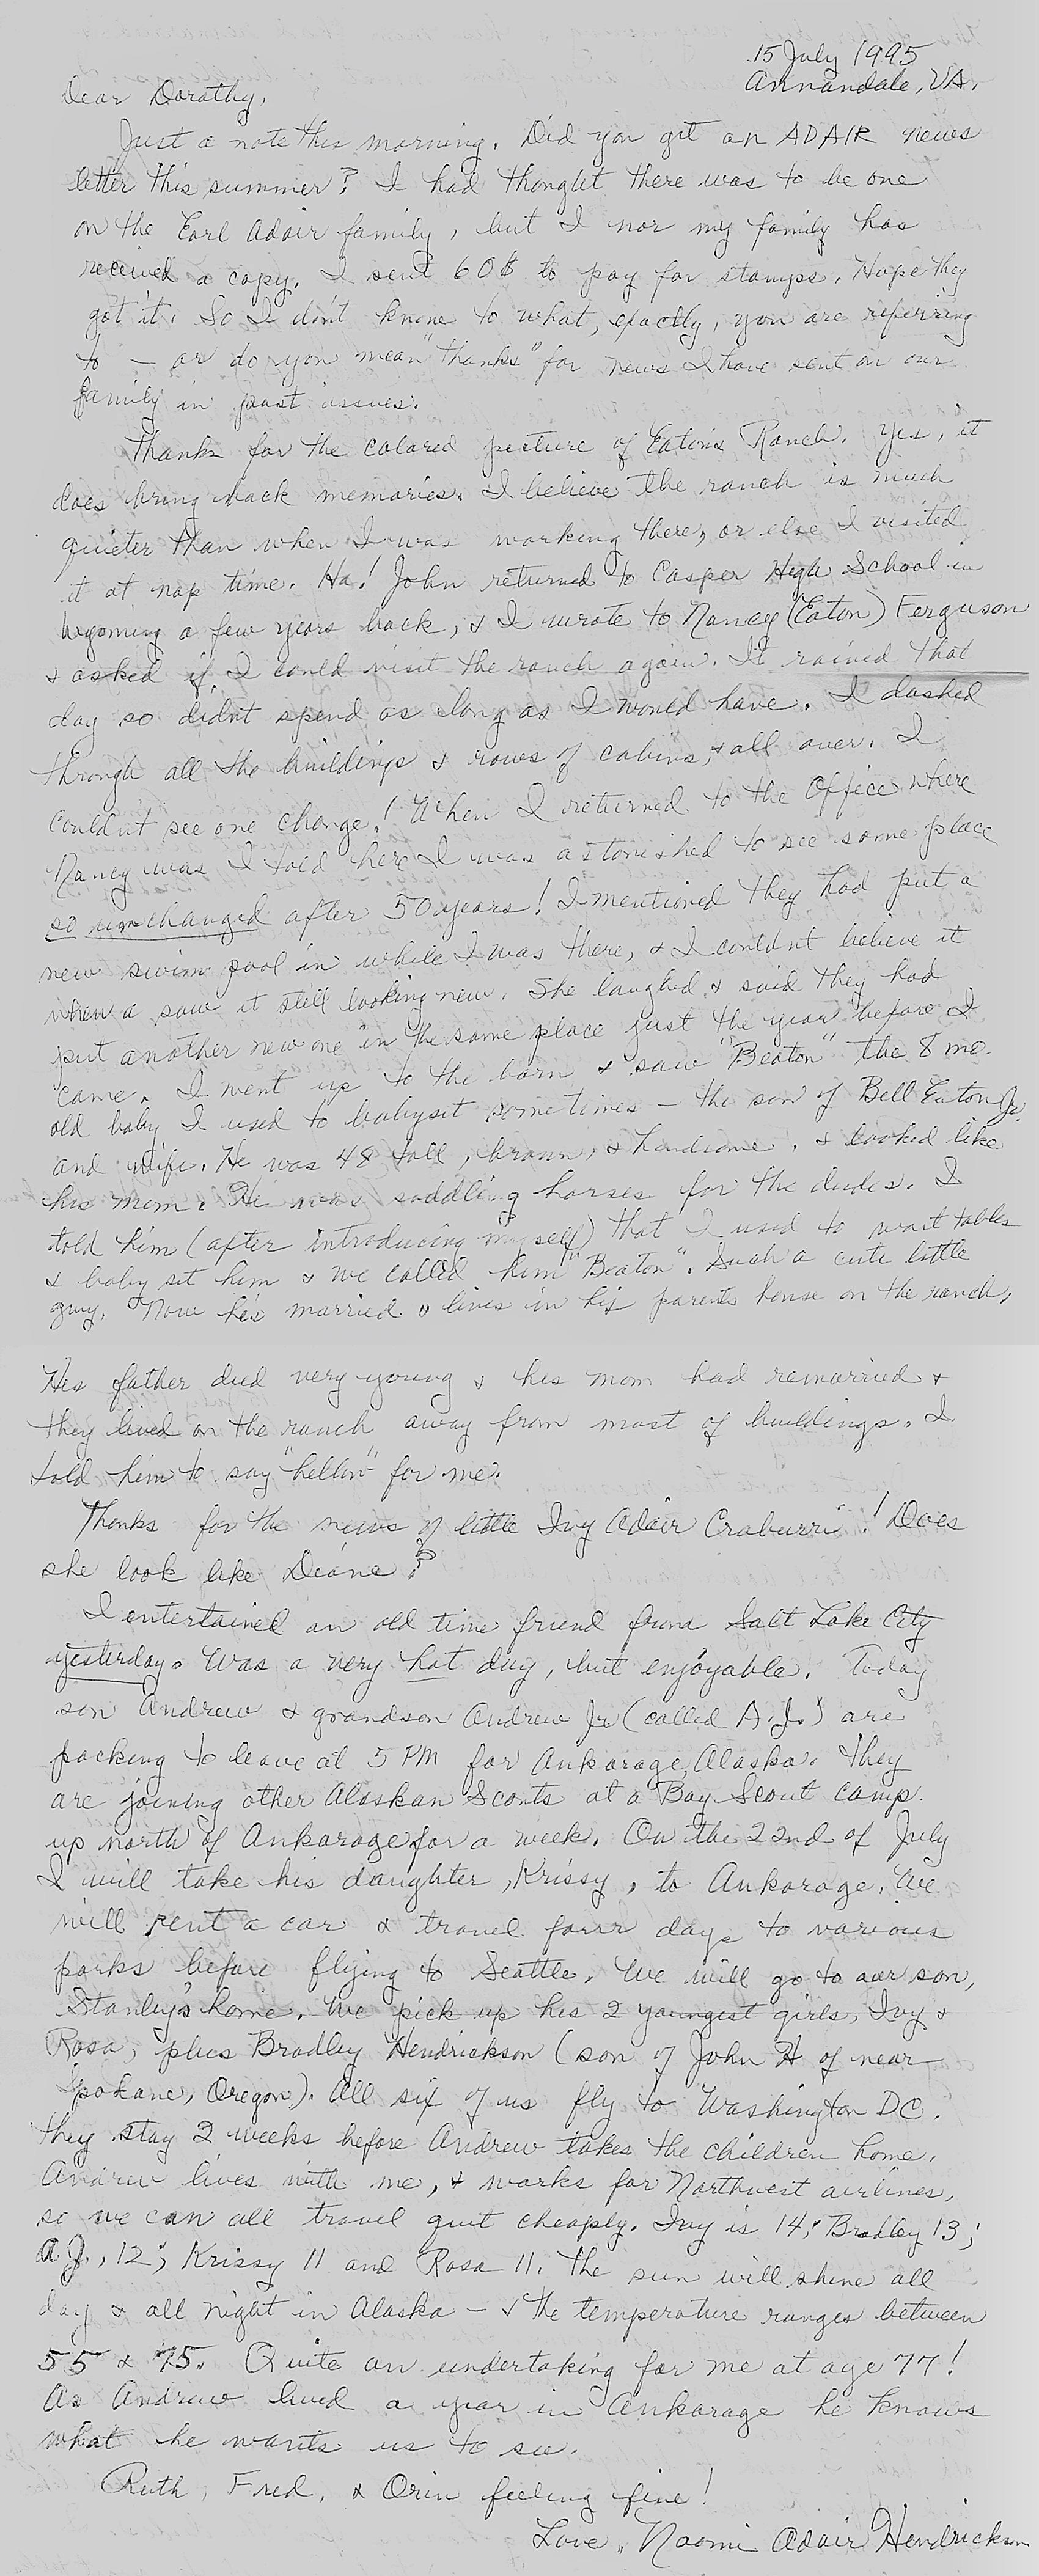 15 July 1995
Annandale, VA.
Dear Dorathy,
Just a note this morning. Did you get an ADAIR news
letter this summer? I had thought there was to be one
on the Earl Adair family, but I nor my family has
received a copy. I sent 60$ to pay for stamps. Hope they
got it. So I don't know to what, exactly, you are referring
to — or do you mean "thanks" for news I have sent on our
family in past issues.
Thanks for the colared picture of Eaton's Ranch. Yes, it
does bring back memories. I believe the ranch is much
quieter than when I was working there, or else I visited
it at nap time. Ha! John returned to Casper High School in
Wyoming a few years back, & I wrote to Nancy (Eaton) Ferguson
& asked if I could visit the ranch again. It rained that
day so didn't spend as long as I would have. I dashed
through all the buildings & rows of cabins, & all over. I
couldn't see one change! When I returned to the Office where
Nancy was I told here I was astonished to see some place
so unchanged after 50 years! I mentioned they had put a
new swim pool in while I was there, & I couldn't believe it
when a saw it still looking new. She laughed & said they had
put another new one in the same place just the year before I
came. I went up to the barn & saw "Beaton" the 8 mo.
old baby I used to babysit sometimes — the son of Bell Eaton Jr.
and wife. He was 48 tall, brown, & handsome, & looked like
his mom. He was saddling horses for the dudes. I
told him (after introducing myself) that I used to wait tables
& baby sit him & we called him "Beaton". Such a cute little
guy. Now he's married & lives in his parents house on the ranch,
His father died very young & his mom had remarried &
they lived on the ranch away from most of buildings. I
told him to say "hellow" for me.
Thanks for the news of little Ivy Adair! Does
she look like Diane?
I entertained an old time friend from Salt Lake City
yesterday. Was a very hot day, but enjoyable. Today
son Andrew & grandson Andrew Jr (called A.J.) are
packing to leave at 5 PM for Ankorage, Alaska. They
are joining other Alaskan Scouts at a Boy Scout camp
up north of Ankorage for a week. On the 22nd of July
I will take his daughter, Krissy, to Ankorage. We
will rent a car & travel four days to various
parks before flying to Seattle. We will go to our son,
Stanley's home. We pick up his 2 youngest girls, Ivy &
Rosa, plus Bradley Hendrickson (son of John H of near
Spokane, Oregon). All six of us fly to Washington DC.
They stay 2 weeks before Andrew takes the children home.
Andrew lives with me, & works for Northwest airlines,
so we can all travel quit cheaply. Ivy is 14; Bradley 13;
A.J., 12; Krissy 11 and Rosa 11. The sun will shine all
day & all night in Alaska — & the temperature ranges between
55 & 75. Quite an undertaking for me at age 77!
As Andrew lived a year in Ankorage he knows
what he wants us to see.
Ruth, Fred, & Orin feeling fine!
Love, Naomi Adair Hendrickson